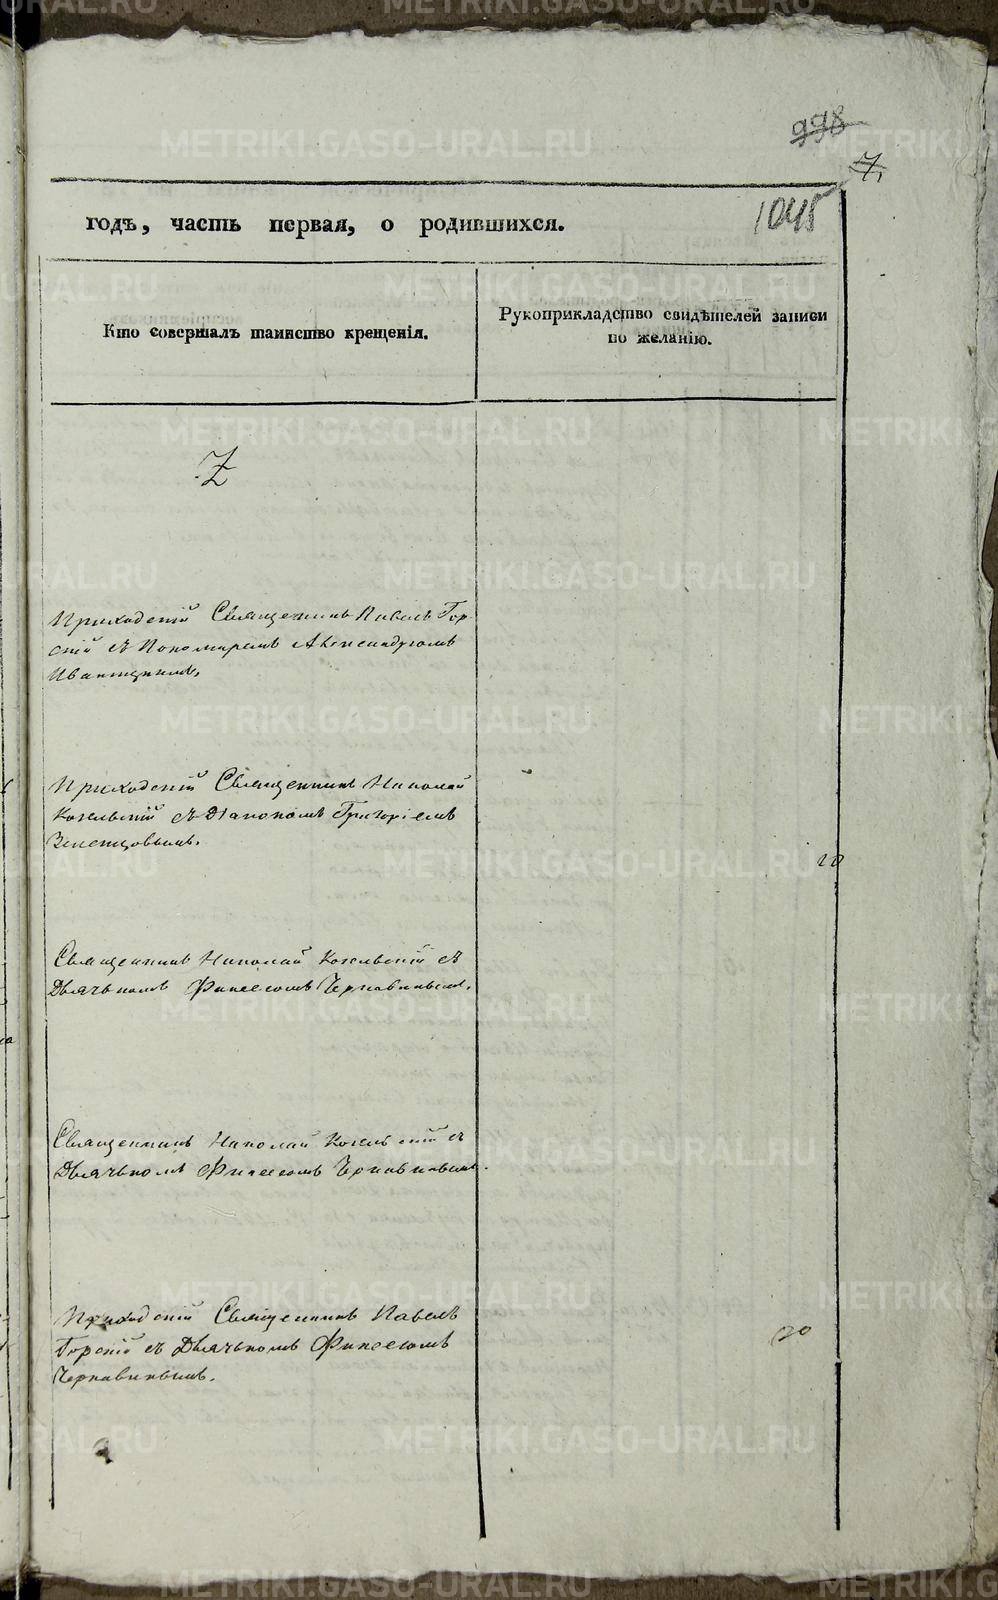 998
7.
1045
годъ, часть первая, о родившихся.
Кто совершалъ таинство крещенія.
Рукоприкладство свидѣтелей записи
по желанію.
Приходскій Священникъ Павелъ Гор-
скій съ Пономаремъ Александромъ
Приходскій Священникъ Николай
Козельскій съ Діакономъ Григоріемъ
Зеленцовымъ.
20
Священникъ Николай Козельскій съ
Дьячькомъ Финеесомъ Чернавинымъ.
Священникъ Николай Козельскій съ
Дьячькомъ Финеесомъ Чернавинымъ.
Приходскій Священникъ Павелъ
Горскій съ Дьячькомъ Финеесомъ
Чернавинымъ.
20
METRIKI.GASO-URAL.RU